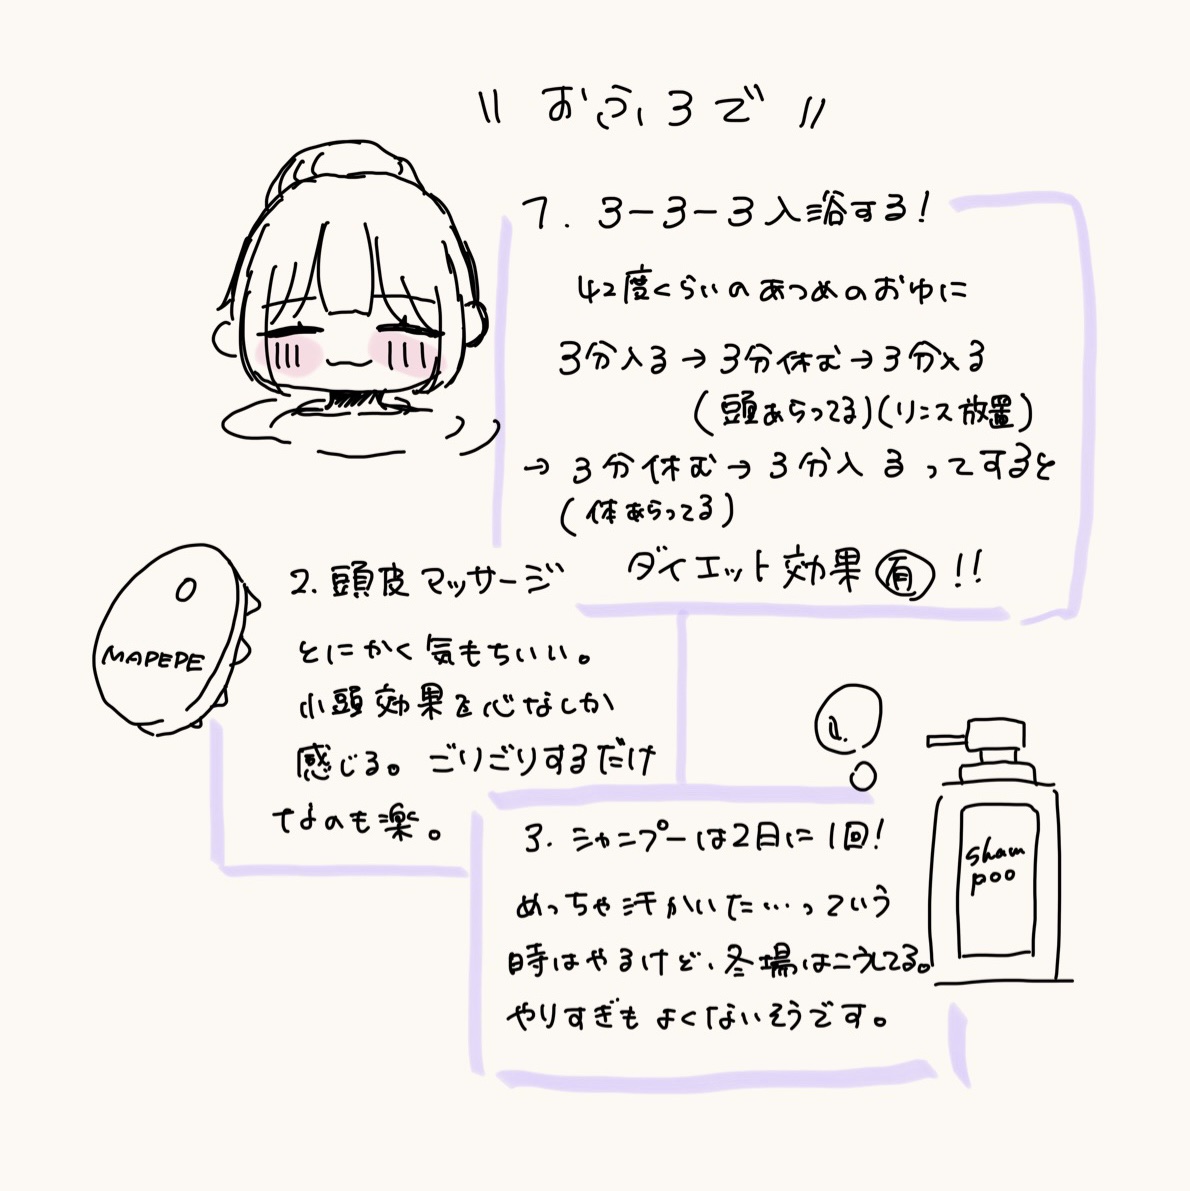 \\ おふろで //
1. 3-3-3入浴する!
42度くらいのあつめのおゆに
3分入る→3分休む→3分入る
(頭あらってる)(リンス放置)
→3分休む→3分入るってすると
(体あらってる)
ダイエット効果有!!
2. 頭皮マッサージ
とにかく気もちいい。
小頭効果を心なしか
感じる。ごりごりするだけ
なのも楽。
MAPEPE
3. シャンプーは2日に1回!
めっちゃ汗かいた…っていう
時はやるけど、冬場はこうしてる。
やりすぎもよくないそうです。
sham
poo